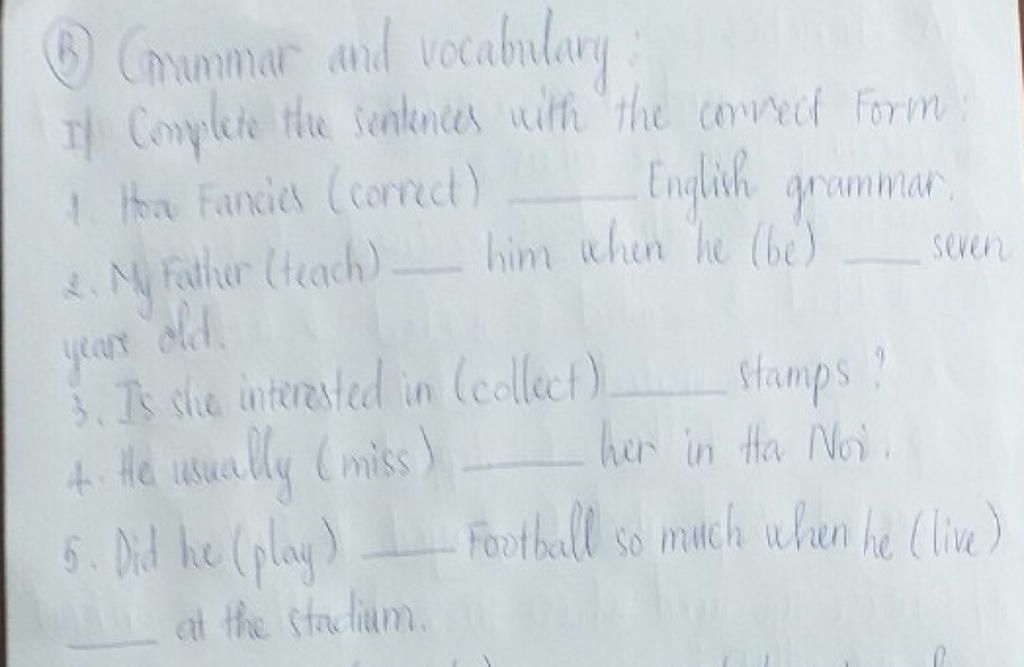 B Grammar and vocabulary:
I/ Complete the sentences with the correct Form:
1. Hoa Fancies (correct) ______ English grammar.
2. My Father (teach) ____ him when he (be) ____ seven
years old.
3. Is she interested in (collect) ______ stamps?
4. He usually (miss) ______ her in Ha Noi.
5. Did he (play) ____ Football so much when he (live)
____ at the stadium.